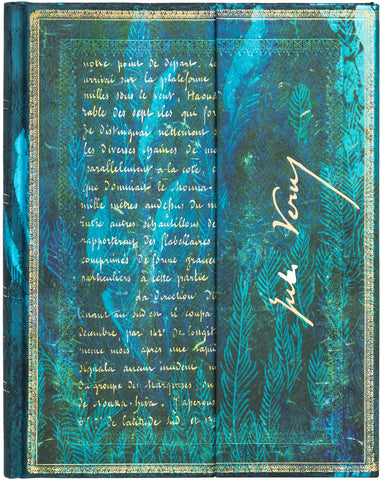 notre point de départ. Le
arrivai sur la plateforme
milles sous le vent, Haoua
rable des sept îles qui for
Je distinguai nettement sa
les diverses chaînes de mo
parallèlement à la côte, e
que dominait le Mouna-
mille mètres au-dessus du ni
entre autres échantillons de
rapportèrent des flabellaires
comprimés de forme gracieu
particuliers à cette partie
La direction du
tinant au sud-est. il coupa
décembre par 142° de longit
même mois, après une rapi
signala aucun incident, n
du groupe des Marquises
de Nouka-Hiva. J'aperçus
de latitude Sud, et 13
Jules Verne